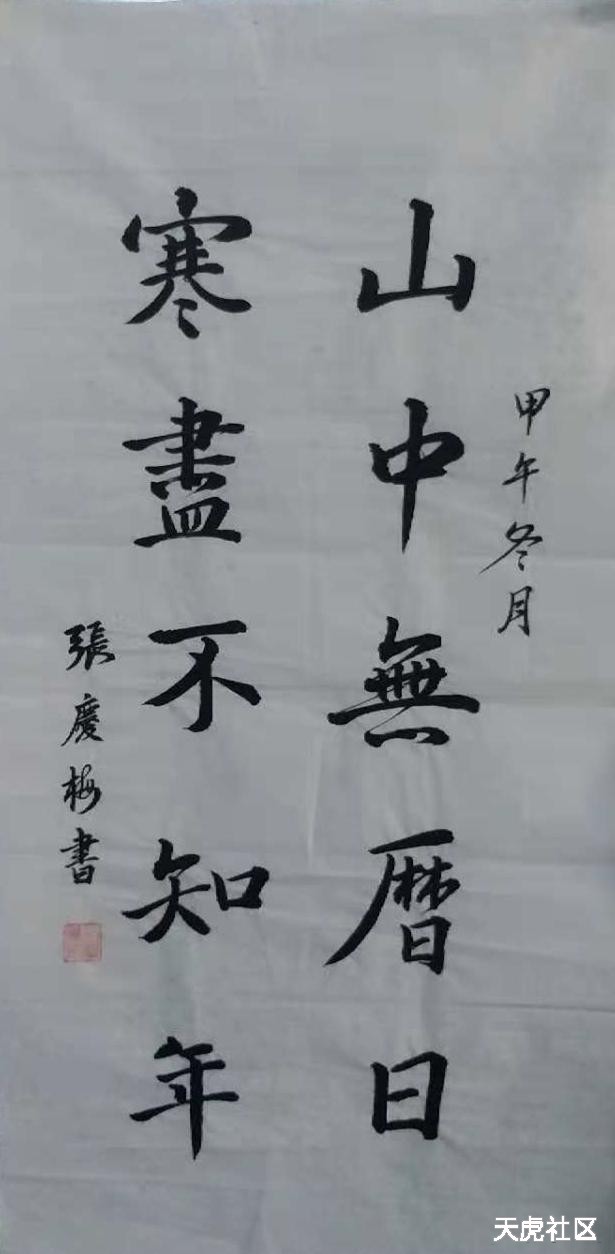 甲午冬月
山中無曆日
寒盡不知年
張慶梅書
天虎社区